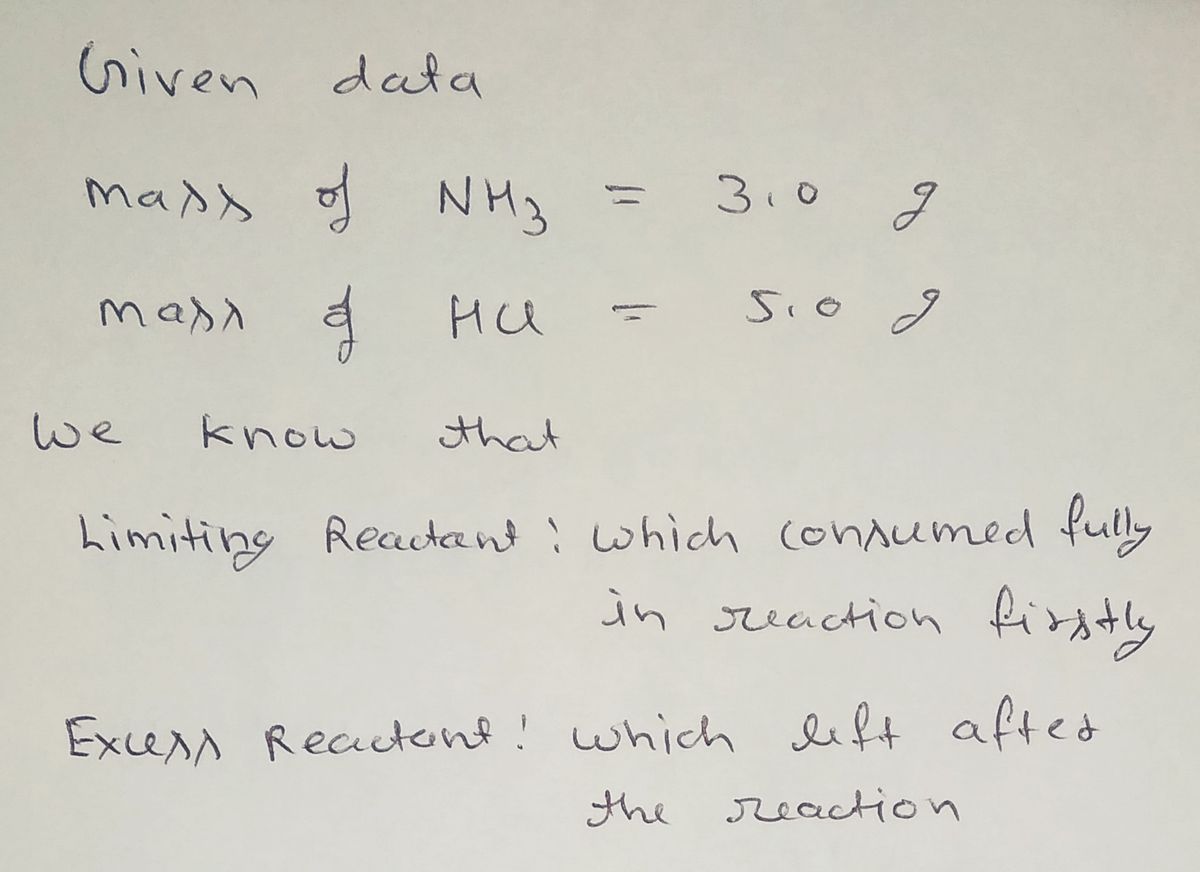 Given data
mass of NH3 = 3.0 g
mass of HCl = 5.0 g
We know that
Limiting Reactant: which consumed fully
in reaction firstly
Excess Reactant: which left after
the reaction